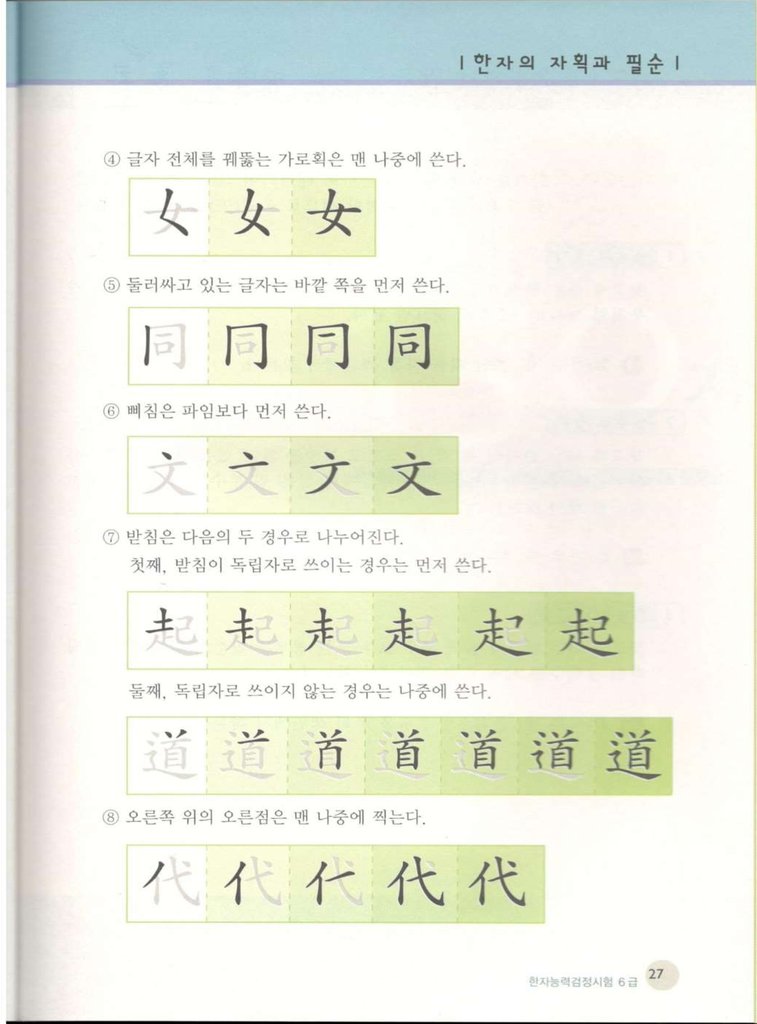 | 한자의 자획과 필순 |
④ 글자 전체를 꿰뚫는 가로획은 맨 나중에 쓴다.
女 女
⑤ 둘러싸고 있는 글자는 바깥 쪽을 먼저 쓴다.
同 同 同 同
⑥ 삐침은 파임보다 먼저 쓴다.
文 文 文 文
⑦ 받침은 다음의 두 경우로 나누어진다.
첫째, 받침이 독립자로 쓰이는 경우는 먼저 쓴다.
起 起 起 起 起 起
둘째, 독립자로 쓰이지 않는 경우는 나중에 쓴다.
道 道 道 道 道 道 道
⑧ 오른쪽 위의 오른점은 맨 나중에 찍는다.
代 代 代 代 代
한자능력검정시험 6급 27